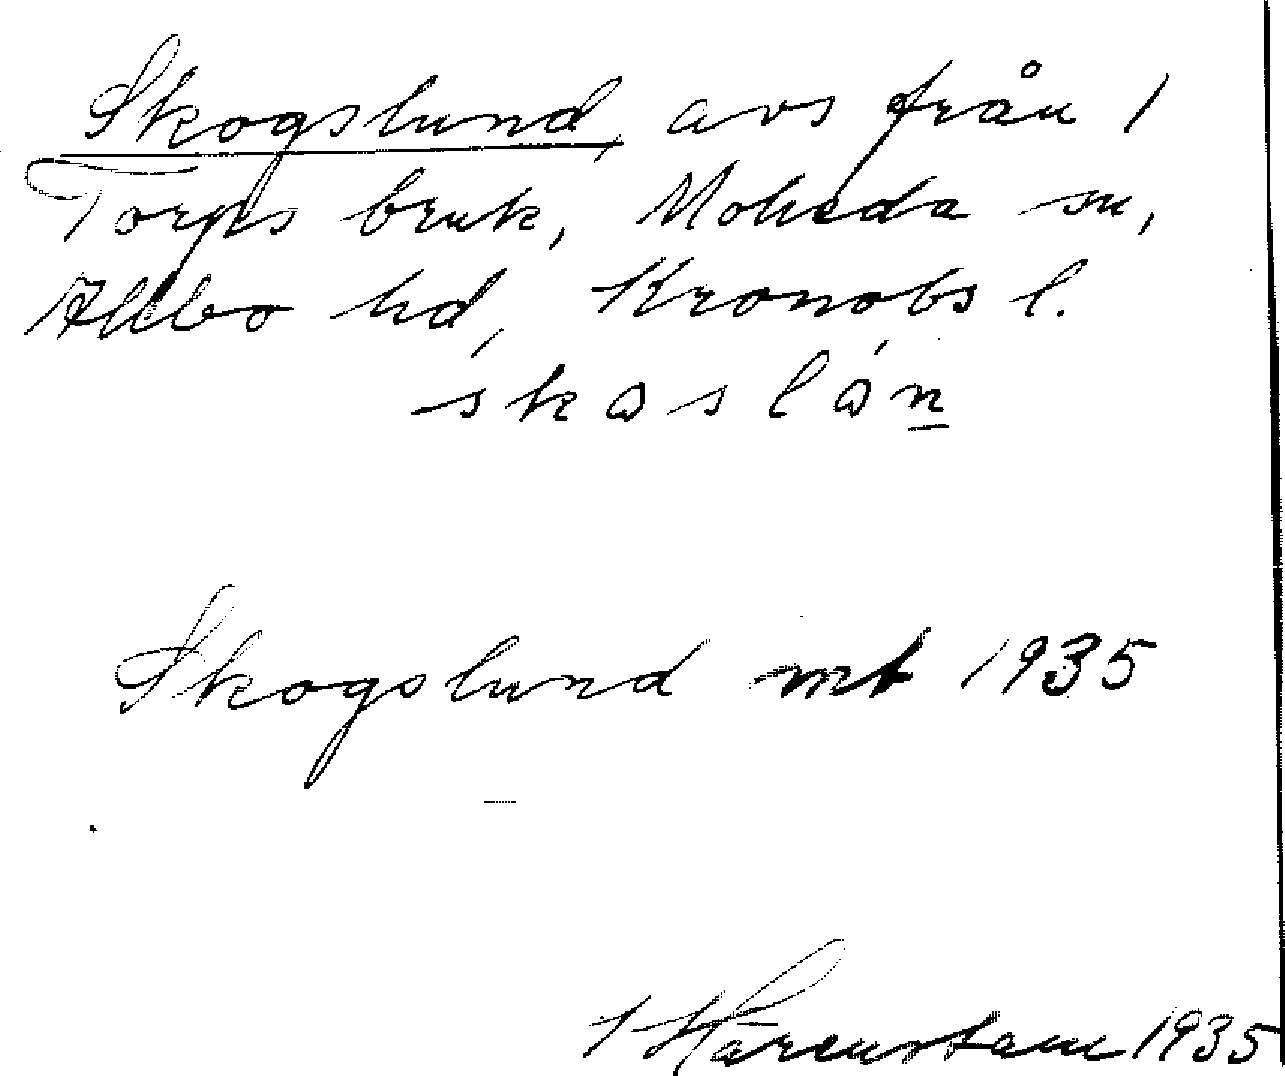 Skogslund, avs från 1
Torps bruk, Moheda sn,
Allbo hd, Kronobs l.
skɑslɑ́n
Skogslund mt 1935
Härenstam 1935